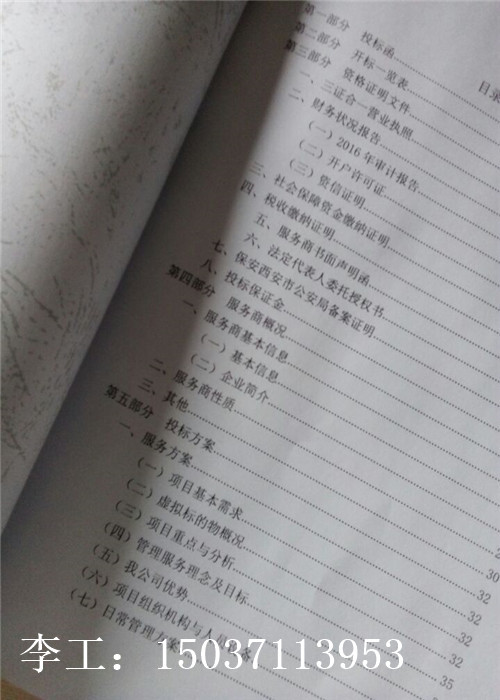 目录
第一部分 投标函
第二部分 开标一览表
第三部分 资格证明文件
一、三证合一营业执照
二、财务状况报告
（一）2016年审计报告
（二）开户许可证
（三）资信证明
三、社会保障资金缴纳证明
四、税收缴纳证明
五、服务商书面声明函
六、法定代表人委托授权书
七、保安西安市公安局备案证明
八、投标保证金
第四部分 服务商概况
一、服务商基本信息
（一）基本信息
（二）企业简介
二、服务商性质
三、其他
第五部分 投标方案
一、服务方案
（一）项目基本需求 30
（二）虚拟标的物概况 32
（三）项目重点与分析 32
（四）管理服务理念及目标 32
（五）我公司优势 32
（六）项目组织机构与人员 35
（七）日常管理方案
李工：15037113953